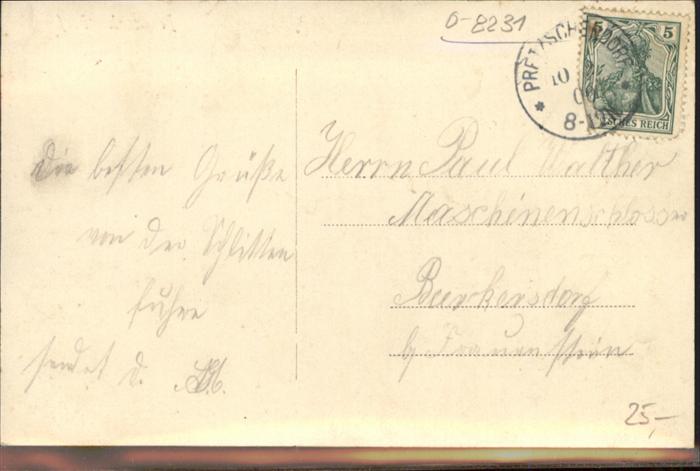 0-8231
PRETZSCHENDORF
10
8-12
5 5
DEUTSCHES REICH
Die besten Grüße
von der Schlitten
fuhre
sendet d.
Herrn Paul Walther
Maschinenschlosser
Burkersdorf
b/ Frauenstein
25,-